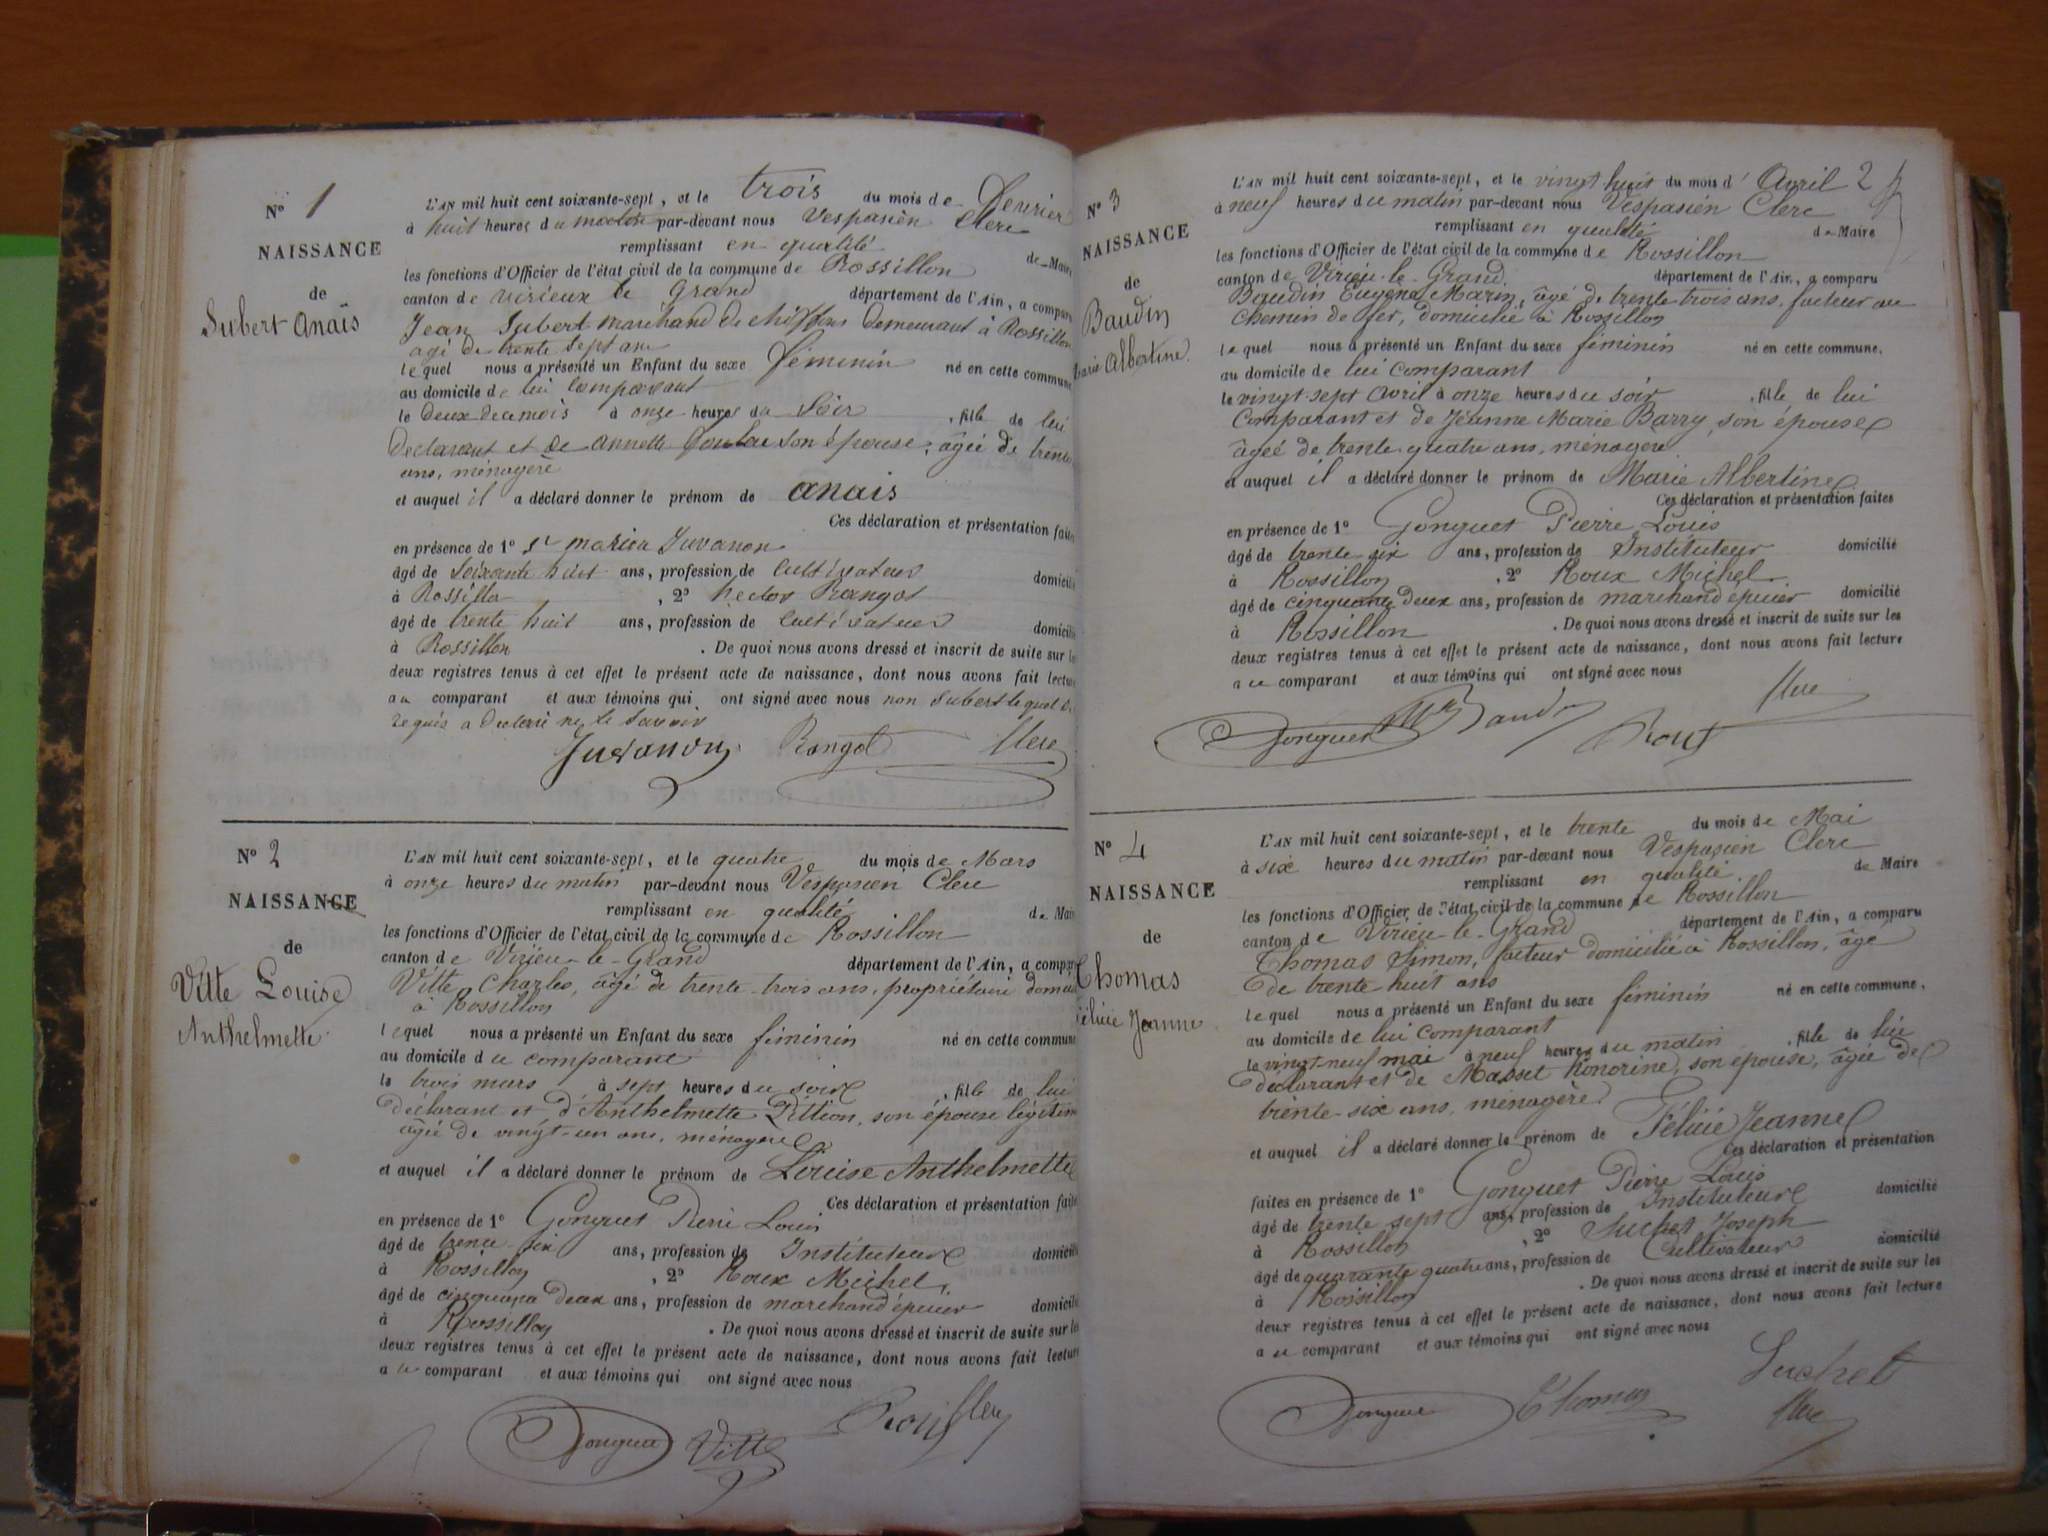 N° 1
NAISSANCE
de
Subert Anaïs
L'AN mil huit cent soixante-sept, et le trois du mois de Fevrier
à huit heures du matin par-devant nous Vespasien Clerc
remplissant en qualité de Maire
les fonctions d'Officier de l'état civil de la commune de Rossillon
canton de virieux le Grand département de l'Ain, a comparu
Jean Subert marchand de chiffons demeurant à Rossillon
agé de trente sept ans
lequel nous a présenté un Enfant du sexe féminin né en cette commune
au domicile de lui comparant
le deux du mois à onze heures du Soir , fille de lui
declarant et de annette son épouse, âgée de trente
ans, ménagère
et auquel il a déclaré donner le prénom de anais
Ces déclaration et présentation faites
en présence de 1° Sr marien Juvanon
âgé de Soixante huit ans, profession de Cultivateur domicilié
à Rossillon , 2° hector Rangot
âgé de trente huit ans, profession de Cultivateur domicilié
à Rossillon . De quoi nous avons dressé et inscrit de suite sur les
deux registres tenus à cet effet le présent acte de naissance, dont nous avons fait lecture
au comparant et aux témoins qui ont signé avec nous non Subert lequel de
requis a declaré ne le Savoir
Juvanon Rangot Clerc
N° 2
NAISSANCE
de
Vitte Louise
Anthelmette
L'AN mil huit cent soixante-sept, et le quatre du mois de Mars
à onze heures du matin par-devant nous Vespasien Clerc
remplissant en qualité de Maire
les fonctions d'Officier de l'état civil de la commune de Rossillon
canton de Virieu-le-Grand département de l'Ain, a comparu
Vitte Charles, âgé de trente-trois ans, propriétaire domicilié
à Rossillon
lequel nous a présenté un Enfant du sexe féminin né en cette commune
au domicile du comparant
le trois mars à sept heures du soir , fille de lui
déclarant et d'Anthelmette Pittion, son épouse légitime
âgée de vingt-un ans, ménagère
et auquel il a déclaré donner le prénom de Louise Anthelmette
Ces déclaration et présentation faites
en présence de 1° Gonguet Pierre Louis
âgé de trente-six ans, profession de Instituteur domicilié
à Rossillon , 2° Roux Michel,
âgé de cinquante deux ans, profession de marchand épicier domicilié
à Rossillon . De quoi nous avons dressé et inscrit de suite sur les
deux registres tenus à cet effet le présent acte de naissance, dont nous avons fait lecture
au comparant et aux témoins qui ont signé avec nous
Gonguet Vitte Roux Clerc
2
N° 3
NAISSANCE
de
Baudin
Marie Albertine
L'AN mil huit cent soixante-sept, et le vingt huit du mois d'Avril
à neuf heures du matin par-devant nous Vespasien Clerc
remplissant en qualité de Maire
les fonctions d'Officier de l'état civil de la commune de Rossillon
canton de Virieu-le-Grand département de l'Ain, a comparu
Baudin Eugène Marin, âgé de trente trois ans, facteur au
chemin de fer, domicilié à Rossillon
lequel nous a présenté un Enfant du sexe féminin né en cette commune,
au domicile de lui comparant
le vingt-sept avril à onze heures du soir , fille de lui
comparant et de Jéanne Marie Barry, son épouse
âgée de trente-quatre ans, ménagère
et auquel il a déclaré donner le prénom de Marie Albertine
Ces déclaration et présentation faites
en présence de 1° Gonguet Pierre Louis
âgé de trente six ans, profession de Instituteur domicilié
à Rossillon , 2° Roux Michel
âgé de cinquante deux ans, profession de marchand épicier domicilié
à Rossillon . De quoi nous avons dressé et inscrit de suite sur les
deux registres tenus à cet effet le présent acte de naissance, dont nous avons fait lecture
au comparant et aux témoins qui ont signé avec nous
Gonguet Baudin Roux Clerc
N° 4
NAISSANCE
de
Thomas
Félicie Jeanne
L'AN mil huit cent soixante-sept, et le trente du mois de Mai
à six heures du matin par-devant nous Vespasien Clerc
remplissant en qualité de Maire
les fonctions d'Officier de l'état civil de la commune de Rossillon
canton de Virieu-le-Grand département de l'Ain, a comparu
Thomas Simon, facteur domicilié à Rossillon, âgé
de trente huit ans
lequel nous a présenté un Enfant du sexe féminin né en cette commune,
au domicile de lui comparant
le vingt-neuf mai à neuf heures du matin , fille de lui
déclarant et de Masset honorine, son épouse, âgée de
trente-six ans, ménagère
et auquel il a déclaré donner le prénom de Félicie Jeanne
Ces déclaration et présentation
faites en présence de 1° Gonguet Pierre Louis
âgé de trente sept ans, profession de Instituteur domicilié
à Rossillon , 2° Suchet Joseph
âgé de quarante quatre ans, profession de Cultivateur domicilié
à Rossillon . De quoi nous avons dressé et inscrit de suite sur les
deux registres tenus à cet effet le présent acte de naissance, dont nous avons fait lecture
au comparant et aux témoins qui ont signé avec nous
Suchet
Gonguet Thomas Clerc